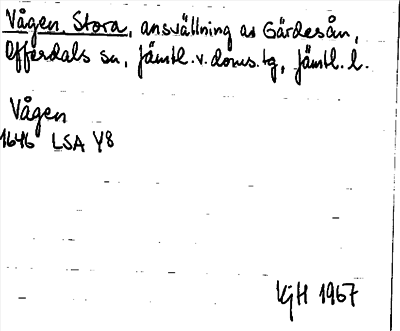 Vågen, Stora, ansvällning av Gärdesån,
Offerdals sn, Jämtl. v. doms. tg, Jämtl. l.
Vågen
1646 LSA Y8
KjH 1967